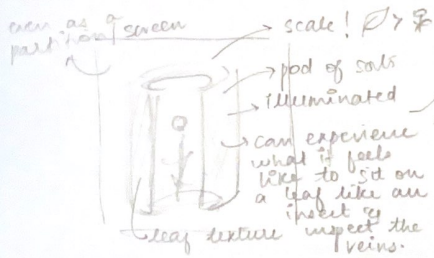 even as a
partition / screen
scale!
pod of sorts
illuminated
can experience
what it feels
like to sit on
a leaf like an
insect & inspect the
veins.
leaf texture